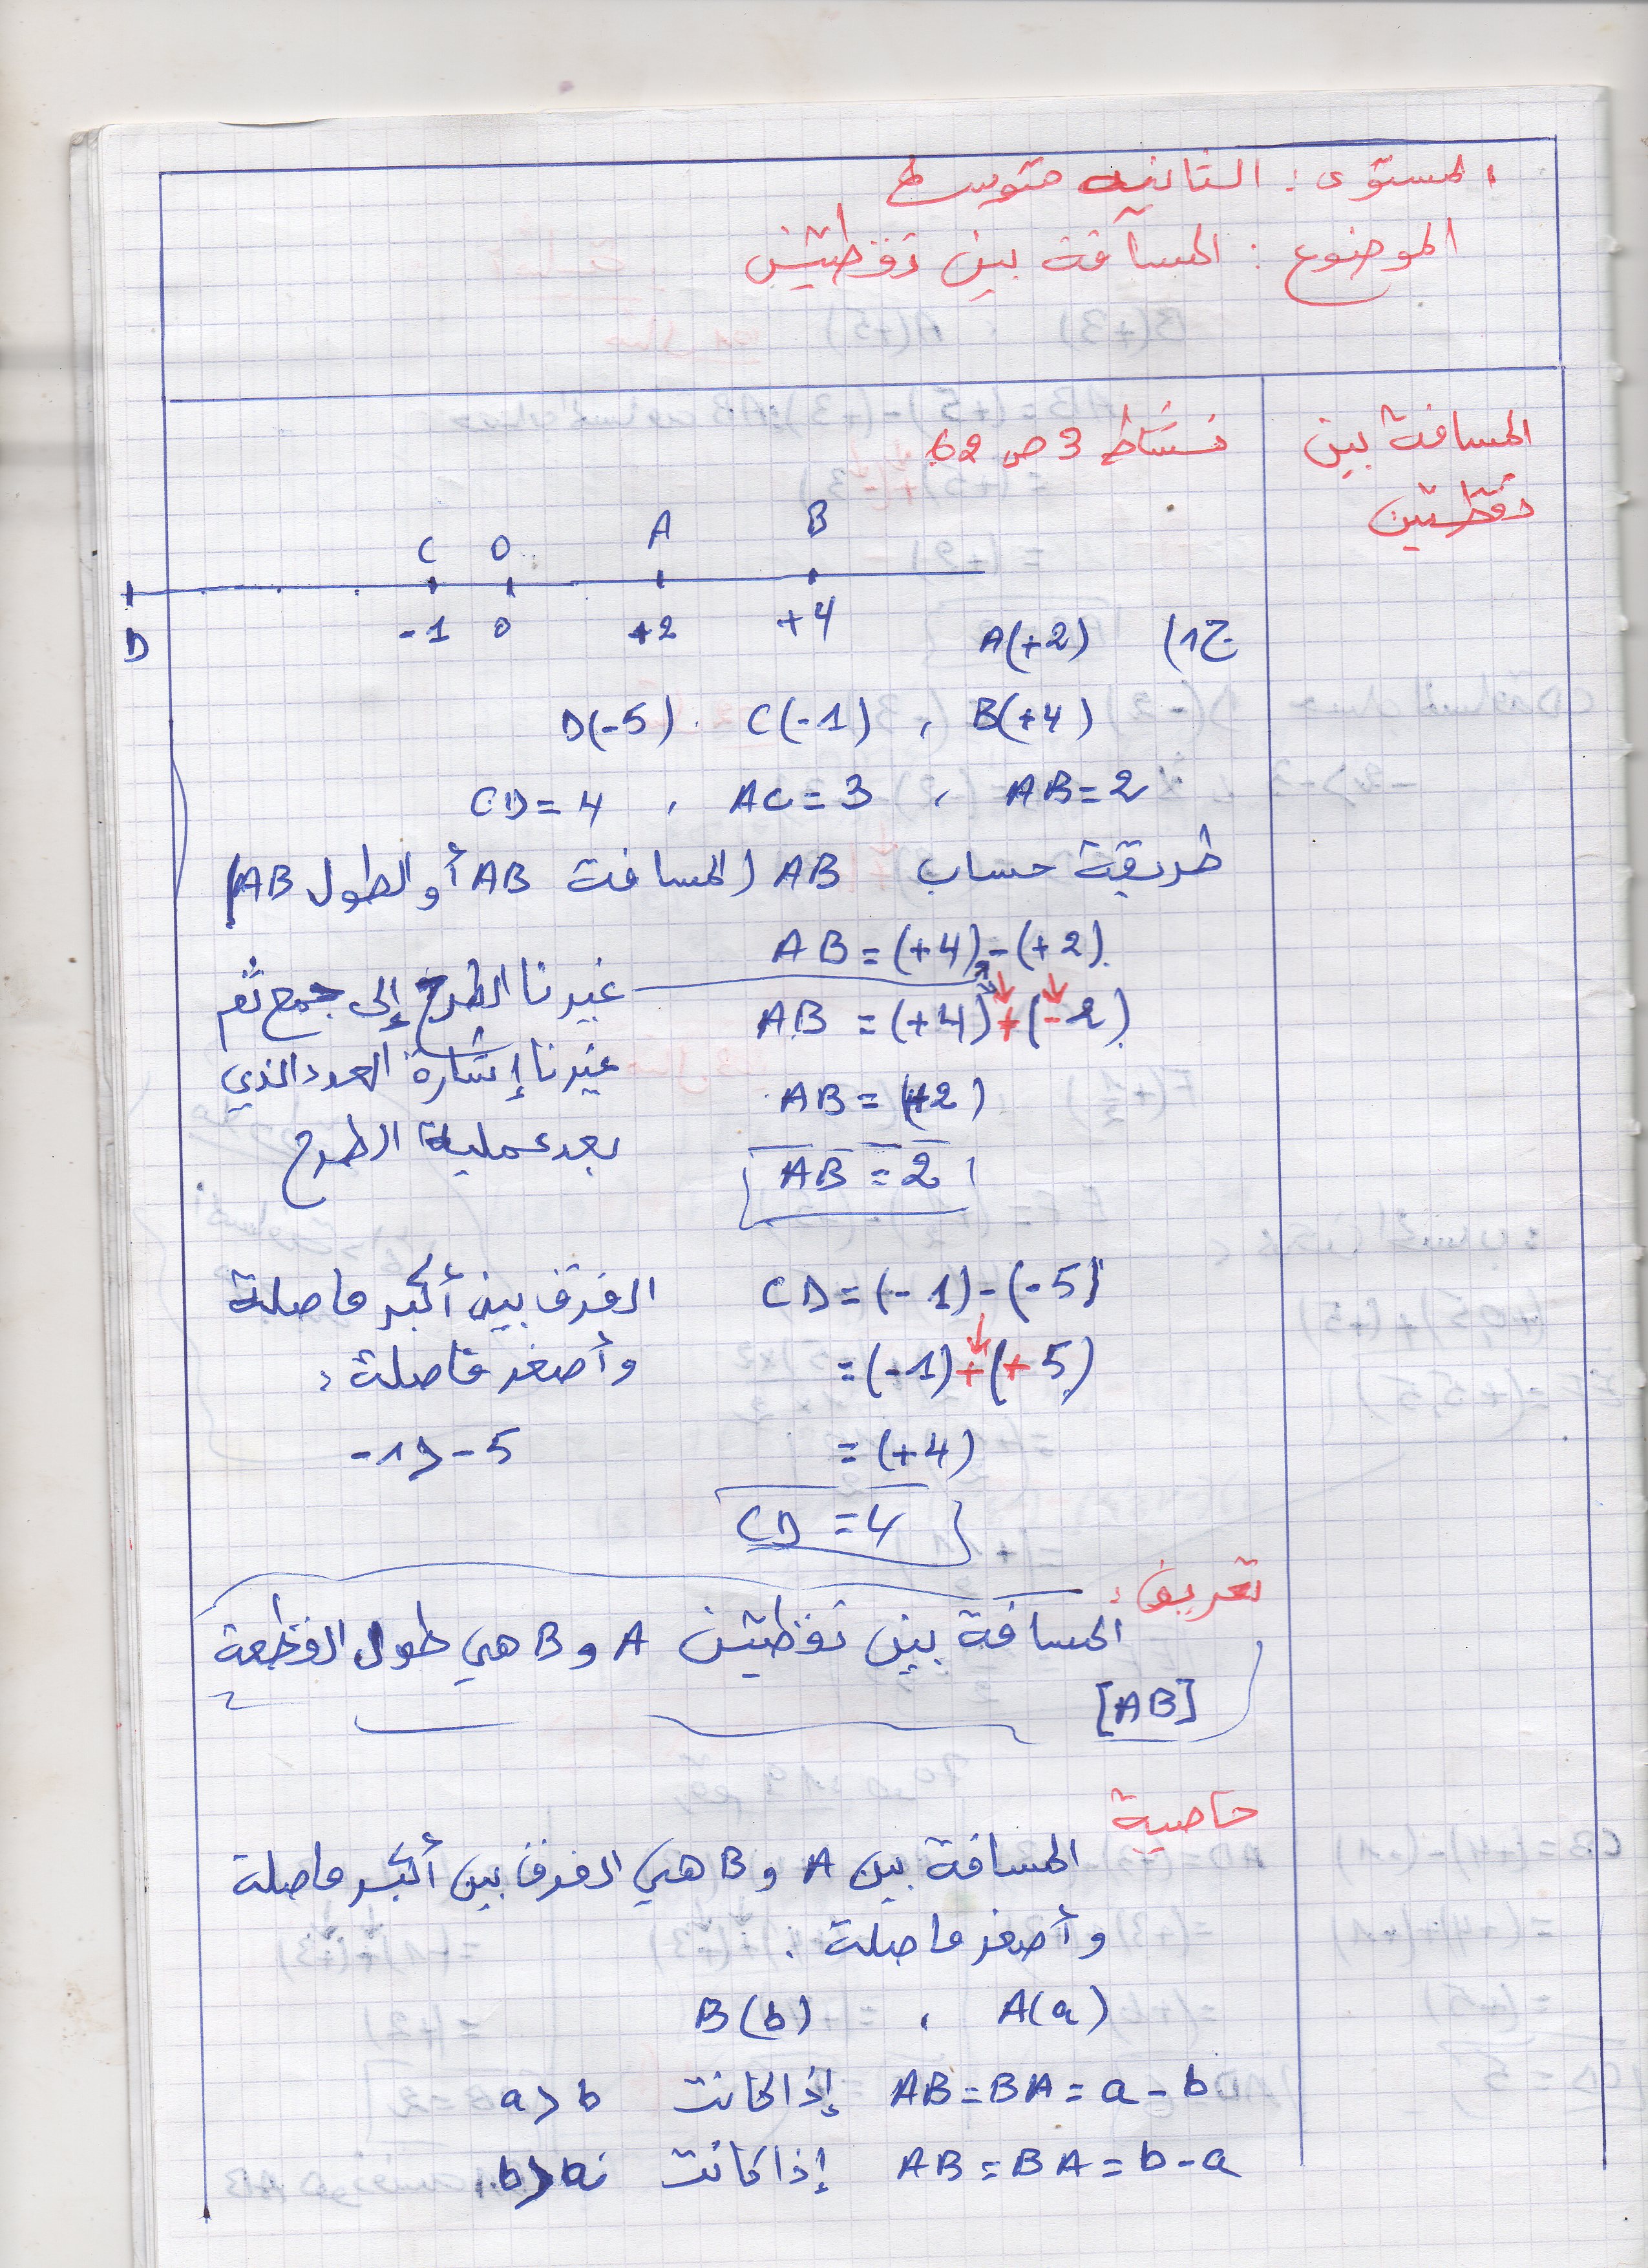 المستوى : الثانية متوسط
الموضوع : المسافة بين نقطتين
المسافة بين
نقطتين
نشاط 3 ص 62
C O A B
D -1 0 +2 +4
ج1) A(+2)
B(+4) ، C(-1) . D(-5)
AB=2 ، AC=3 ، CD=4
طريقة حساب AB (المسافة AB أو الطول AB)
AB = (+4) - (+2)
AB = (+4) + (-2)
غيرنا الطرح إلى جمع ثم
غيرنا إشارة العدد الذي
بعد عملية الطرح
AB = (+2)
AB = 2
CD = (-1) - (-5)
الفرق بين أكبر فاصلة
= (-1) + (+5)
وأصغر فاصلة :
= (+4)
-1 > -5
CD = 4
تعريف :
المسافة بين نقطتين A و B هي طول القطعة
[AB]
خاصية
المسافة بين A و B هي الفرق بين أكبر فاصلة
وأصغر فاصلة .
A(a) ، B(b)
AB = BA = a - b إذا كانت a > b
AB = BA = b - a إذا كانت b > a